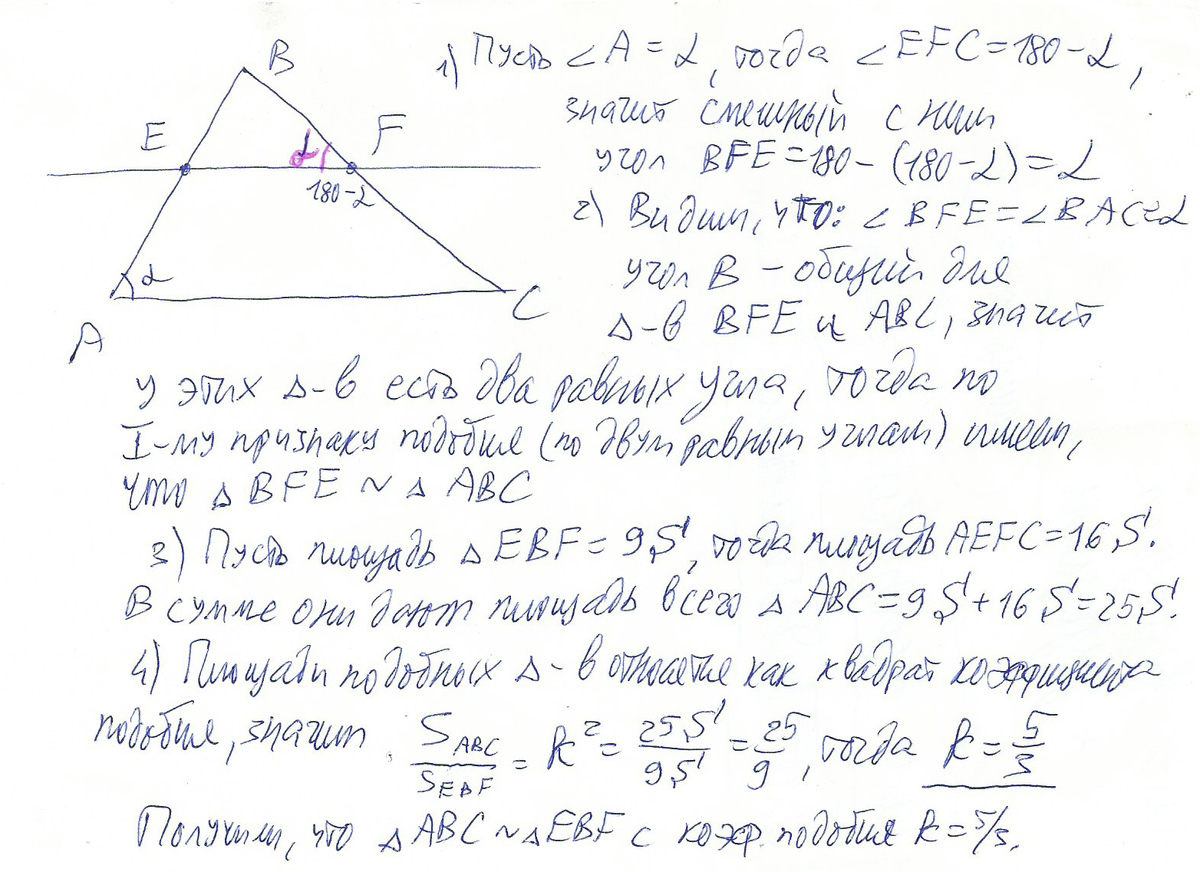 B
E
F
α
180-α
α
A
C
1) Пусть ∠A = α, тогда ∠EFC = 180-α,
значит смежный с ним
угол BFE = 180 - (180-α) = α
2) Видим, что: ∠BFE = ∠BAC = α
угол B - общий для
Δ-в BFE и ABC, значит
у этих Δ-в есть два равных угла, тогда по
I-му признаку подобия (по двум равным углам) имеем,
что Δ BFE ~ Δ ABC
3) Пусть площадь Δ EBF = 9S, тогда площадь AEFC = 16S.
В сумме они дают площадь всего Δ ABC = 9S + 16S = 25S.
4) Площади подобных Δ-в относятся как квадрат коэффициента
подобия, значит S_ABC/S_EBF = k² = 25S/9S = 25/9, тогда k = 5/3
Получим, что Δ ABC ~ Δ EBF с коэф. подобия k = 5/3.